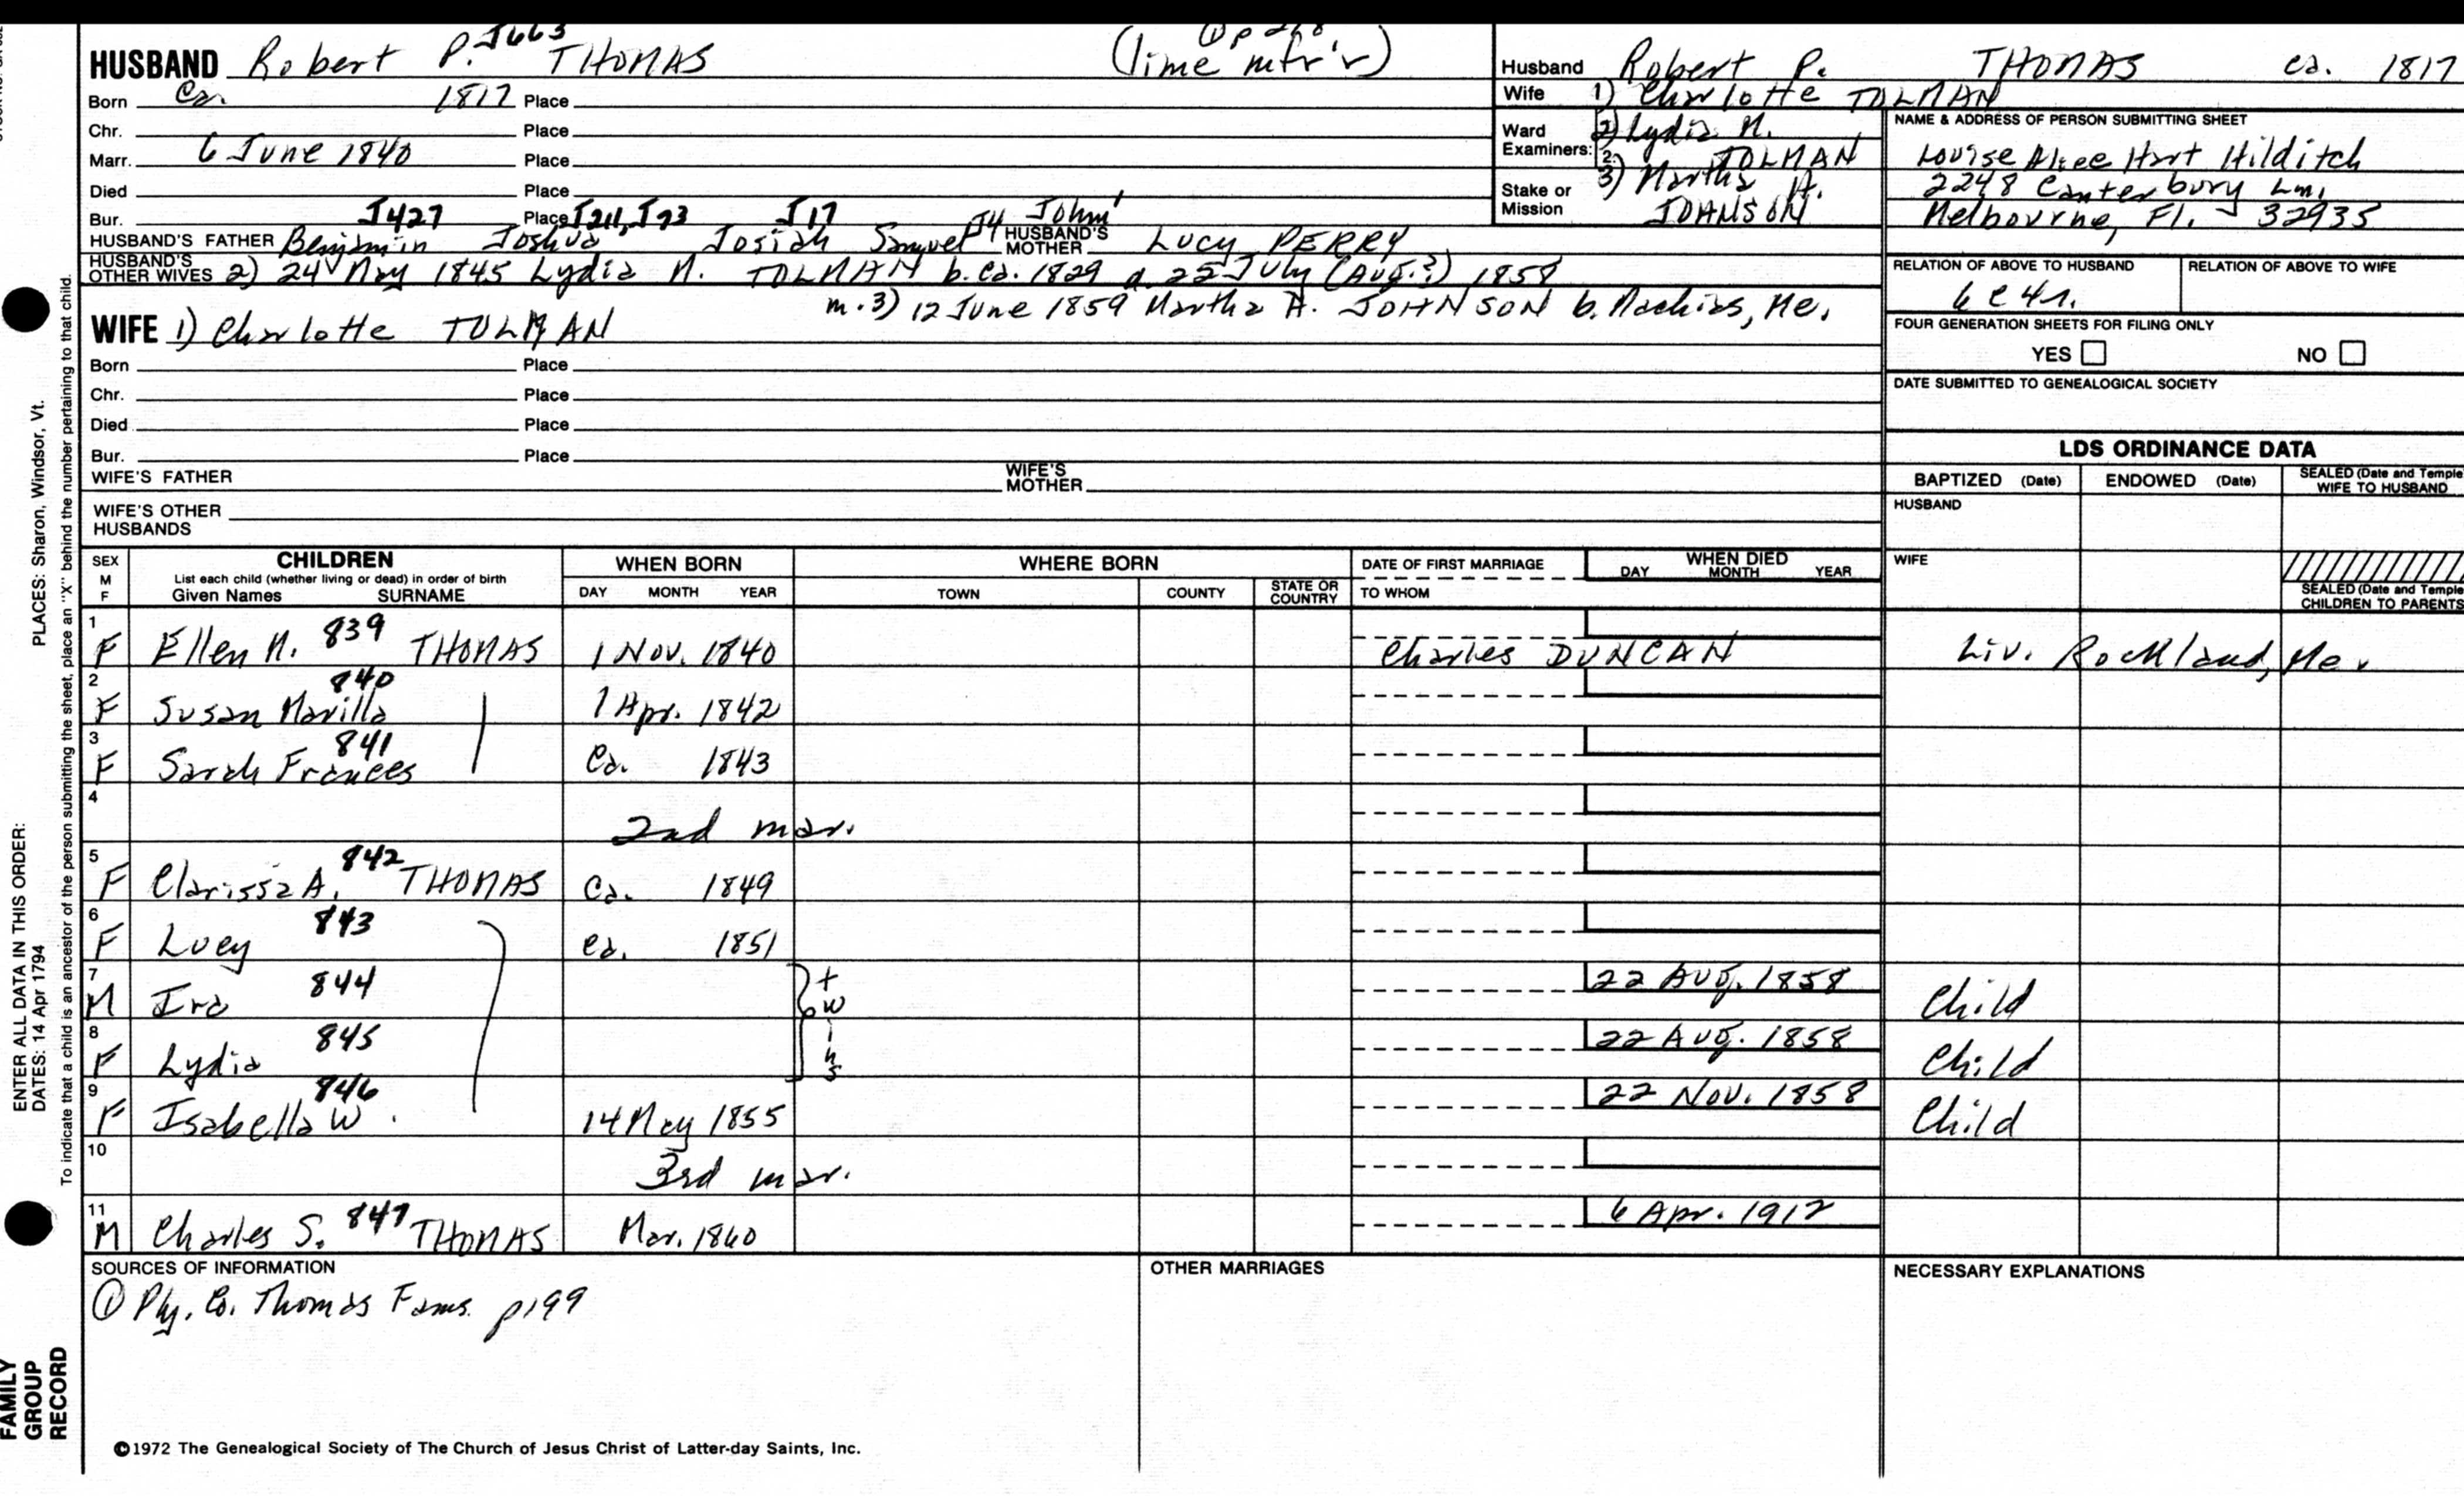 HUSBAND Robert P. J663 THOMAS (lime mfr'r)
Born Ca. 1817 Place
Chr. Place
Marr. 6 June 1840 Place
Died Place
Bur. Place
J427 J211, J73 J17 J4 John'
HUSBAND'S FATHER Benjamin Joshua Josiah Samuel HUSBAND'S MOTHER Lucy PERRY
HUSBAND'S OTHER WIVES 2) 24 May 1845 Lydia M. TOLMAN b. ca. 1829 d. 22 July (Aug.?) 1858
m. 3) 12 June 1859 Martha A. JOHNSON b. Machias, Me.
WIFE 1) Charlotte TOLMAN
Born Place
Chr. Place
Died Place
Bur. Place
WIFE'S FATHER WIFE'S MOTHER
WIFE'S OTHER HUSBANDS
Husband Robert P. THOMAS ca. 1817
Wife 1) Charlotte TOLMAN
Ward Examiners: 2) Lydia M.
2. TOLMAN
Stake or Mission 3) Martha A.
JOHNSON
NAME & ADDRESS OF PERSON SUBMITTING SHEET
Louise Alice Hart Hilditch
2248 Canterbury Ln.
Melbourne, Fl. 32935
RELATION OF ABOVE TO HUSBAND RELATION OF ABOVE TO WIFE
6c4r.
FOUR GENERATION SHEETS FOR FILING ONLY
YES NO
DATE SUBMITTED TO GENEALOGICAL SOCIETY
LDS ORDINANCE DATA
BAPTIZED (Date) ENDOWED (Date) SEALED (Date and Temple WIFE TO HUSBAND
HUSBAND
WIFE
SEALED (Date and Temple CHILDREN TO PARENTS
SEX M F CHILDREN WHEN BORN WHERE BORN DATE OF FIRST MARRIAGE WHEN DIED
List each child (whether living or dead) in order of birth
Given Names SURNAME DAY MONTH YEAR TOWN COUNTY STATE OR COUNTRY TO WHOM DAY MONTH YEAR
1 F Ellen M. 839 THOMAS 1 Nov. 1840 Charles DUNCAN Liv. Rockland, Me.
2 F Susan Marilla 840 1 Apr. 1842
3 F Sarah Frances 841 Ca. 1843
4 2nd mar.
5 F Clarissa A. 842 THOMAS Ca. 1849
6 F Lucy 843 ca. 1851
7 M Ira 844 twins 22 Aug. 1858 Child
8 F Lydia 845 22 Aug. 1858 Child
9 F Isabella W. 846 14 May 1855 22 Nov. 1858 Child
10 3rd mar.
11 M Charles S. 847 THOMAS Mar. 1860 6 Apr. 1912
SOURCES OF INFORMATION OTHER MARRIAGES NECESSARY EXPLANATIONS
① Ply. Co. Thomas Fams. p199
©1972 The Genealogical Society of The Church of Jesus Christ of Latter-day Saints, Inc.
PLACES: Sharon, Windsor, Vt.
To indicate that a child is an ancestor of the person submitting the sheet, place an "X" behind the number pertaining to that child.
ENTER ALL DATA IN THIS ORDER:
DATES: 14 Apr 1794
FAMILY
GROUP
RECORD